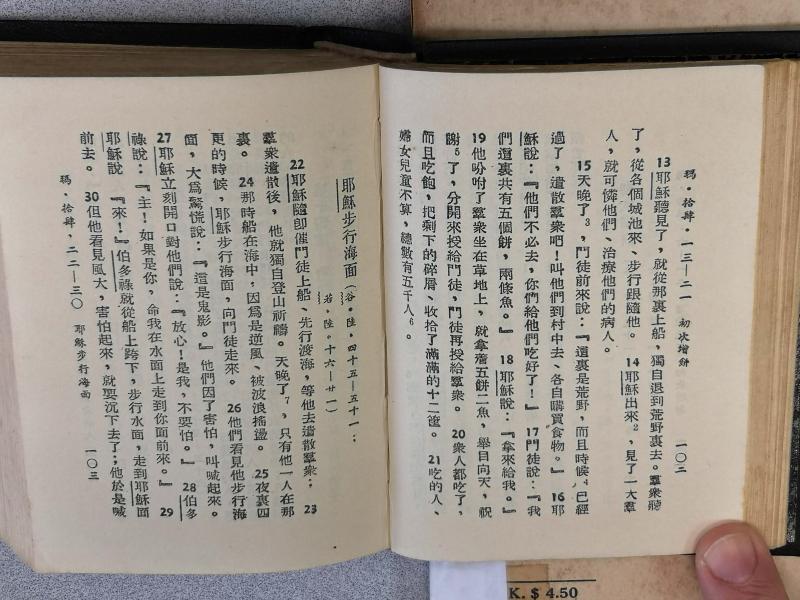 瑪·拾肆·一三—二一 初次增餅 一〇二
13耶穌聽見了，就從那裏上船，獨自退到荒野裏去。羣衆聽
了，從各個城池來、步行跟隨他。 14耶穌出來2，見了一大羣
人，就可憐他們、治療他們的病人。
15天晚了3，門徒前來說：『這裏是荒野，而且時候4已經
過了，遣散羣衆吧！叫他們到村中去、各自購買食物。』 16耶
穌說：『他們不必去，你們給他們吃好了！』 17門徒說：『我
們這裏共有五個餅，兩條魚。』 18耶穌說：『拿來給我。』
19他吩咐了羣衆坐在草地上，就拿着五餅二魚，舉目向天，祝
謝5了，分開來授給門徒，門徒再授給羣衆。 20衆人都吃了，
而且吃飽，把剩下的碎屑、收拾了滿滿的十二筐。 21吃的人、
婦女兒童不算，總數有五千人6。
耶穌步行海面（谷·陸·四十五—五十一：
若·陸·十六—廿一）
22耶穌隨卽催門徒上船、先行渡海，等他去遣散羣衆； 23
羣衆遣散後，他就獨自登山祈禱。天晚了7，只有他一人在那
裏。 24那時船在海中，因爲是逆風、被波浪搖盪。 25夜裏四
更的時候，耶穌步行海面，向門徒走來。 26他們看見他步行海
面，大爲驚慌說：『這是鬼影。』他們因了害怕，叫喊起來。
27耶穌立刻開口對他們說：『放心！是我，不要怕。』 28伯多
祿說：『主！如果是你，命我在水面上走到你面前來。』 29
耶穌說『來！』伯多祿就從船上跨下，步行水面，走到耶穌面
前去。 30但他看見風大，害怕起來，就要沉下去了；他於是喊
瑪·拾肆·二二—三〇 耶穌步行海面 一〇三
K. $ 4.50